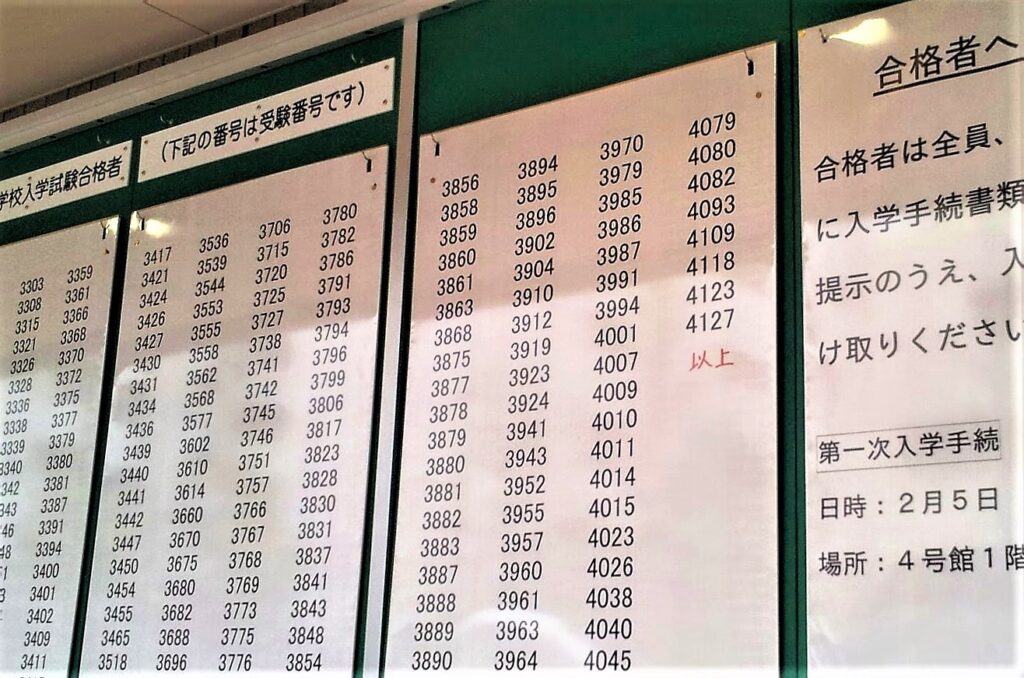 学校入学試験合格者
(下記の番号は受験番号です)
3303 3359
3308 3361
3315 3366
3321 3368
3326 3370
3328 3372
3336 3375
3338 3377
3339 3379
3340 3380
3381
3387
3391
3394
3400
3401
3402
3409
3411
3417 3536 3706 3780
3421 3539 3715 3782
3424 3544 3720 3786
3426 3553 3725 3791
3427 3555 3727 3793
3430 3558 3738 3794
3431 3562 3741 3796
3434 3568 3742 3799
3436 3577 3745 3806
3439 3602 3746 3817
3440 3610 3751 3823
3441 3614 3757 3828
3442 3660 3766 3830
3447 3670 3767 3831
3450 3675 3768 3837
3454 3680 3769 3841
3455 3682 3773 3843
3465 3688 3775 3848
3518 3696 3776 3854
3856 3894 3970 4079
3858 3895 3979 4080
3859 3896 3985 4082
3860 3902 3986 4093
3861 3904 3987 4109
3863 3910 3991 4118
3868 3912 3994 4123
3875 3919 4001 4127
3877 3923 4007 以上
3878 3924 4009
3879 3941 4010
3880 3943 4011
3881 3952 4014
3882 3955 4015
3883 3957 4023
3887 3960 4026
3888 3961 4038
3889 3963 4040
3890 3964 4045
合格者へ
合格者は全員、
に入学手続書類
提示のうえ、入
け取りください
第一次入学手続
日時：２月５日
場所：４号館１階